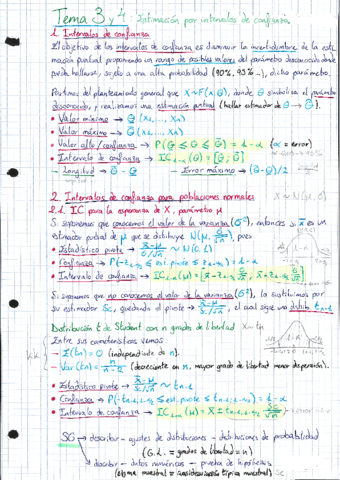 Tema 3 y 4: Estimación por intervalos de confianza
1. Intervalos de confianza
El objetivo de los intervalos de confianza es disminuir la incertidumbre de la esti-
mación puntual proponiendo un rango de posibles valores del parámetro desconocido donde
pueda hallarse, sujeto a una alta probabilidad (90%, 95%...), dicho parámetro.
Partimos del planteamiento general que X~F(x, θ), donde θ simboliza el parámetro
desconocido, y realizamos una estimación puntual (hallar estimador de θ → θ̂).
• Valor mínimo → θ (X1,..., Xn)
• Valor máximo → θ̄ (X1,..., Xn)
• Valor alto/confianza → P(θ ≤ θ ≤ θ̄) = 1-α (α = error)
• Intervalo de confianza → IC1-α(θ) = [θ, θ̄]
– Longitud → θ̄ - θ – Error máximo → (θ̄-θ)/2
2. Intervalos de confianza para poblaciones normales
2.1. IC para la esperanza de X, parámetro μ
Si suponemos que conocemos el valor de la varianza (σ²), entonces x̄ es un
estimador puntual de μ que se distribuye N(μ, σ/√n), pues
• Estadístico pivote → x̄-μ / σ/√n ~ N(0,1)
• Confianza → P(-z1-α/2 ≤ est. pivote ≤ z1-α/2) = 1-α
• Intervalo de confianza → IC1-α(μ) = [x̄-z1-α/2 σ/√n, x̄+z1-α/2 σ/√n]
Si suponemos que no conocemos el valor de la varianza (σ²), la sustituimos por
su estimador Sc, quedando el pivote → x̄-μ / Sc/√n, el cual sigue una distrib. tn-1
Distribución t de Student con n grados de libertad X~tn
Entre sus características vemos:
– E(tn) = 0 (independiente de n).
– Var(tn) = n/n-2 (decreciente en n, mayor grado de libertad menor dispersión).
• Estadístico pivote → x̄-μ / Sc/√n ~ tn-1
• Confianza → P(-tn-1,1-α/2 ≤ est. pivote ≤ tn-1,1-α/2) = 1-α
• Intervalo de confianza → IC1-α(μ) = x̄ ± tn-1,1-α/2 Sc/√n
SC → describir – ajustes de distribuciones – distribuciones de probabilidad
(G.L. = grados de libertad = n)
describir – datos numéricos – prueba de hipótesis